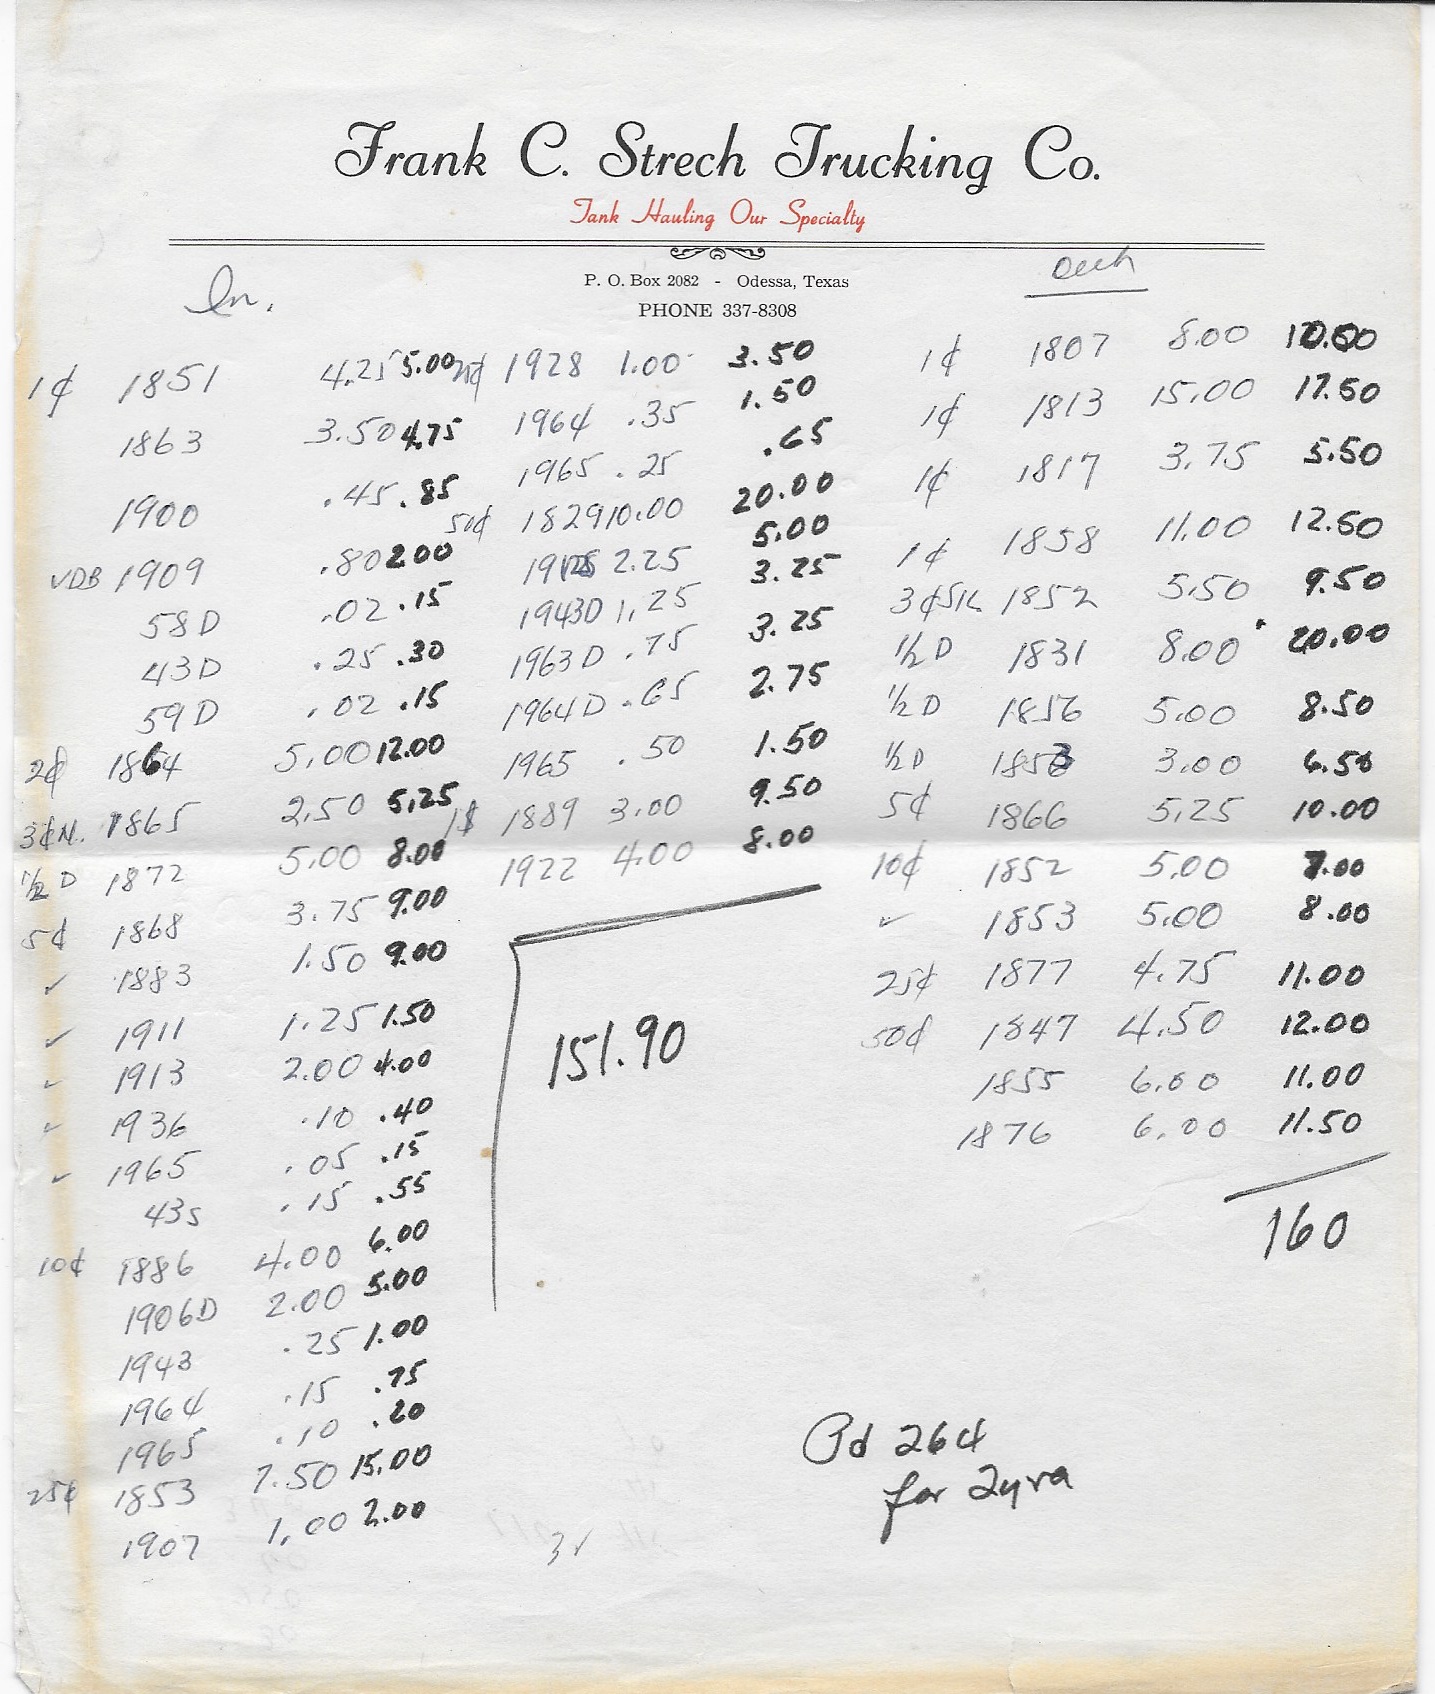 Frank C. Strech Trucking Co.
Tank Hauling Our Specialty
P. O. Box 2082 - Odessa, Texas
PHONE 337-8308
In.
1¢ 1851 4.25 5.00
1863 3.50 4.75
1900 .45 .85
VDB 1909 .80 2.00
58D .02 .15
43D .25 .30
59D .02 .15
2¢ 1864 5.00 12.00
3¢N. 1865 2.50 5.25
1/2 D 1872 5.00 8.00
5¢ 1868 3.75 9.00
✓ 1883 1.50 9.00
✓ 1911 1.25 1.50
✓ 1913 2.00 4.00
✓ 1936 .10 .40
✓ 1965 .05 .15
43s .15 .55
10¢ 1886 4.00 6.00
1906D 2.00 5.00
1943 .25 1.00
1964 .15 .75
1965 .10 .20
25¢ 1853 7.50 15.00
1907 1.00 2.00
25¢ 1928 1.00 3.50
1964 .35 1.50
1965 .25 .65
50¢ 1829 10.00 20.00
2.25 5.00
1943D 1.25 3.25
1963D .75 3.25
1964D .65 2.75
1965 .50 1.50
1$ 1889 3.00 9.50
1922 4.00 8.00
151.90
31
1¢ 1807 8.00 10.00
1¢ 1813 15.00 17.50
1¢ 1817 3.75 5.50
1¢ 1858 11.00 12.50
3¢Sil 1852 5.50 9.50
1/2 D 1831 8.00 20.00
1/2 D 1856 5.00 8.50
1/2 D 1853 3.00 6.50
5¢ 1866 5.25 10.00
10¢ 1852 5.00 7.00
✓ 1853 5.00 8.00
25¢ 1877 4.75 11.00
50¢ 1847 4.50 12.00
1855 6.00 11.00
1876 6.00 11.50
160
Pd 264
for 2yra